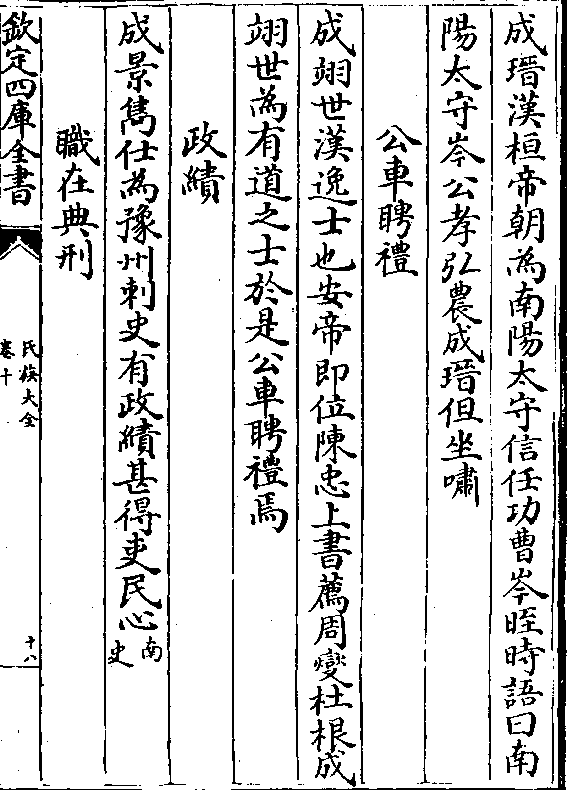 成瑨漢桓帝朝為南陽太守信任功曹岑晊時語曰南
陽太守岑公孝弘農成瑨但坐嘯
公車聘禮
成翊世漢逸士也安帝即位陳忠上書薦周燮杜根成
翊世為有道之士於是公車聘禮焉
政績
成景雋仕為豫州刺史有政績甚得吏民心南史
職在典刑
欽定四庫全書
氏族大全
卷十
十八